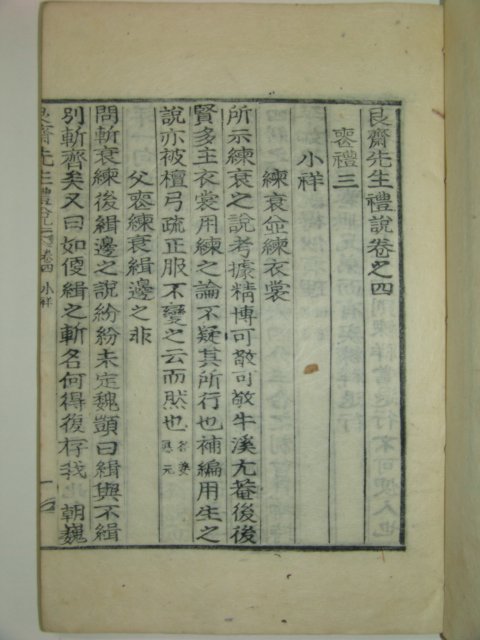 艮齋先生禮說卷之四
喪禮三
小祥
練衰並練衣裳
所示練衰之說考據精博可敬可敬牛溪尤菴後後
賢多主衣裳用練之論不疑其所行也補編用生之
說亦被檀弓疏正服不變之云而然也
父喪練衰緝邊之非
問斬衰練後緝邊之說紛紛未定魏顗曰緝與不緝
別斬齊矣又曰如復緝之斬名何得復存我 朝巍
艮齋先生禮說 卷四 小祥